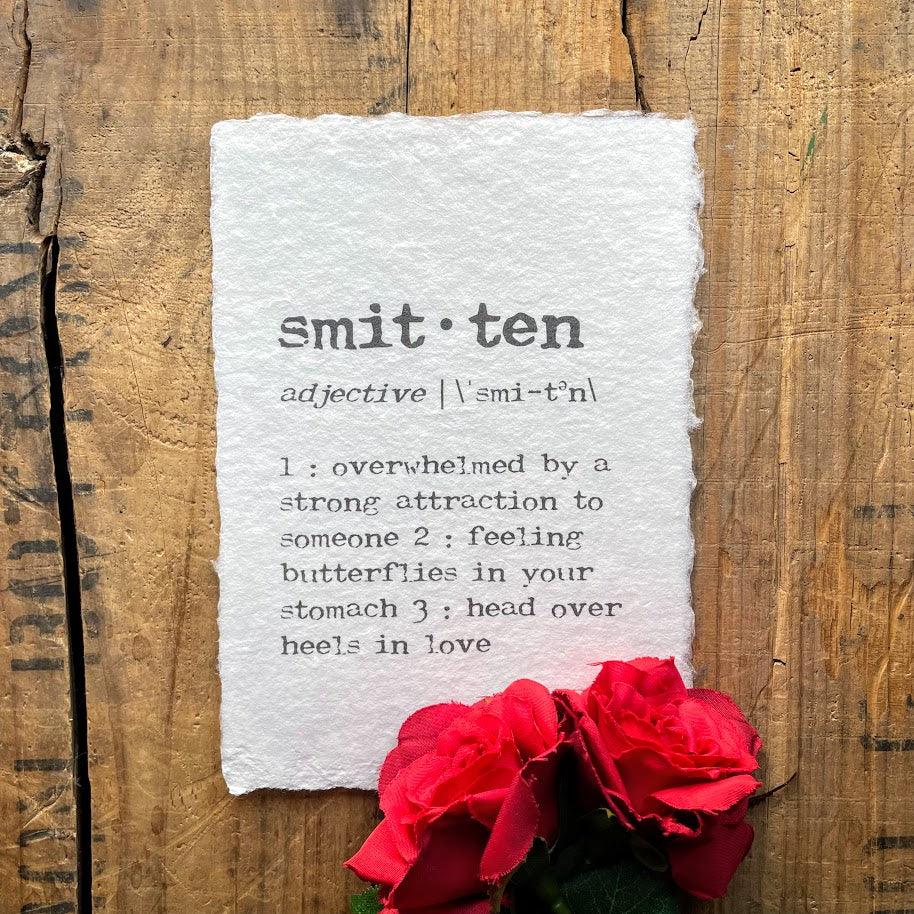 smit·ten
adjective |\ˈsmi-tᵊn\
1 : overwhelmed by a
strong attraction to
someone 2 : feeling
butterflies in your
stomach 3 : head over
heels in love